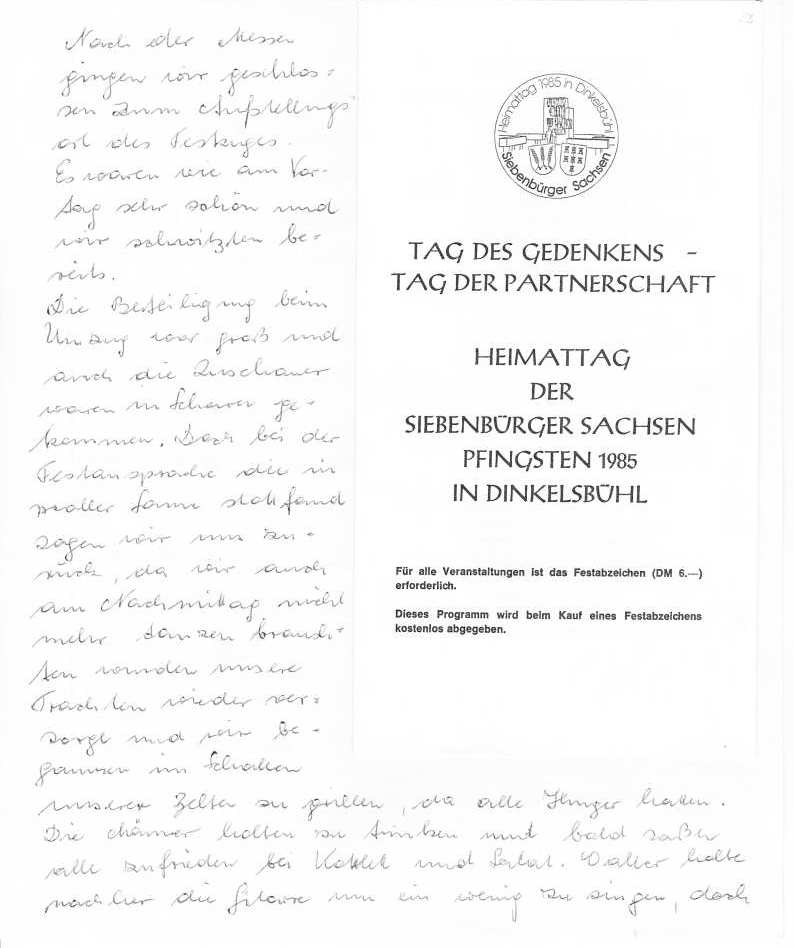 Nach der Messen
gingen wir geschlos=
sen zum Aufstellungs
ort des Festzuges.
Es waren wie am Vor-
tag sehr schön und
wir schwitzten be=
reits.
Die Beteiligung beim
Umzug war groß und
auch die Zuschauer
waren in Scharen ge-
kommen. Doch bei der
Festansprache die in
praller Sonne stattfand
zogen wir uns zu-
rück, da wir auch
am Nachmittag nicht
mehr tanzen brauch=
ten wurden unsere
Trachten wieder ver=
sorgt und wir be-
gannen im Schatten
unserer Zelte zu grillen, da alle Hunger hatten.
Die Männer holten zu trinken und bald saßen
alle zufrieden bei Kotlett und Salat. Walter holte
nachher die Gitarre um ein wenig zu singen, doch
Heimattag 1985 in Dinkelsbühl
Siebenbürger Sachsen
TAG DES GEDENKENS -
TAG DER PARTNERSCHAFT
HEIMATTAG
DER
SIEBENBÜRGER SACHSEN
PFINGSTEN 1985
IN DINKELSBÜHL
Für alle Veranstaltungen ist das Festabzeichen (DM 6.—)
erforderlich.
Dieses Programm wird beim Kauf eines Festabzeichens
kostenlos abgegeben.